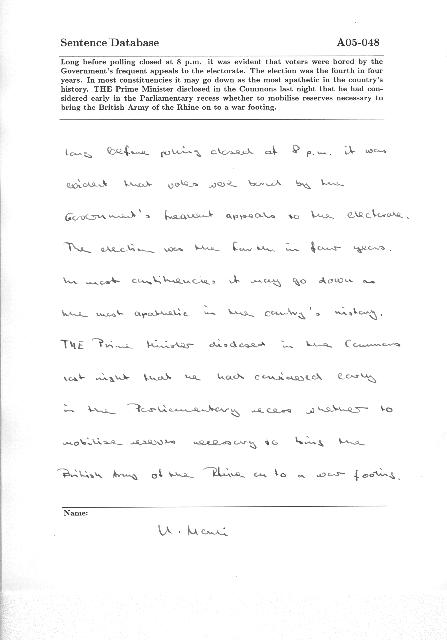 Sentence Database A05-048
Long before polling closed at 8 p.m. it was evident that voters were bored by the
Government's frequent appeals to the electorate. The election was the fourth in four
years. In most constituencies it may go down as the most apathetic in the country's
history. THE Prime Minister disclosed in the Commons last night that he had con-
sidered early in the Parliamentary recess whether to mobilise reserves necessary to
bring the British Army of the Rhine on to a war footing.
Long before polling closed at 8 p.m. it was
evident that voters were bored by the
Government's frequent appeals to the electorate.
The election was the fourth in four years.
In most constituencies it may go down as
the most apathetic in the country's history.
THE Prime Minister disclosed in the Commons
last night that he had considered early
in the Parliamentary recess whether to
mobilise reserves necessary to bring the
British Army of the Rhine on to a war footing.
Name:
U.